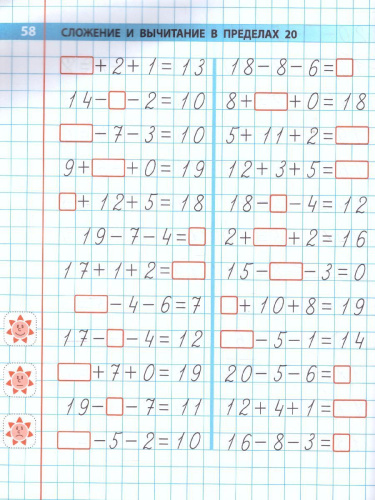 58 СЛОЖЕНИЕ И ВЫЧИТАНИЕ В ПРЕДЕЛАХ 20
□+2+1=13
14-□-2=10
□-7-3=10
9+□+0=19
□+12+5=18
19-7-4=□
17+1+2=□
□-4-6=7
17-□-4=12
□+7+0=19
19-□-7=11
□-5-2=10
18-8-6=□
8+□+0=18
5+11+2=□
12+3+5=□
18-□-4=12
2+□+2=16
15-□-3=0
□+10+8=19
□-5-1=14
20-5-6=□
12+4+1=□
16-8-3=□